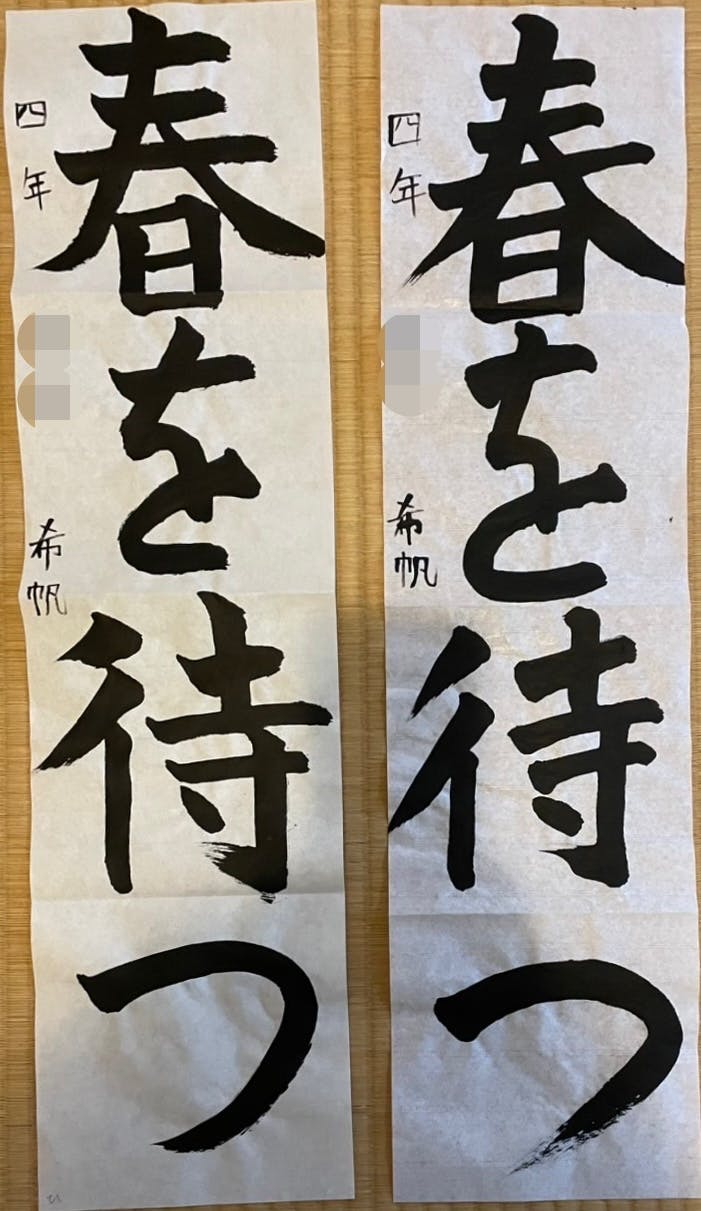 春を待つ
四年 希帆
春を待つ
四年 希帆